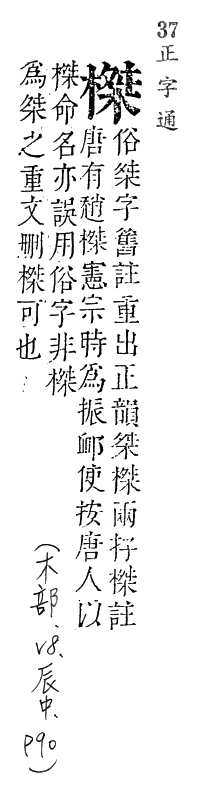 37 正字通
榤 俗桀字舊註重出正韻桀榤兩存榤註
唐有榤憲宗時爲振卹使按唐人以
榤命名亦誤用俗字非榤
爲桀之重文刪榤可也
(木部、v8、辰中、p90)